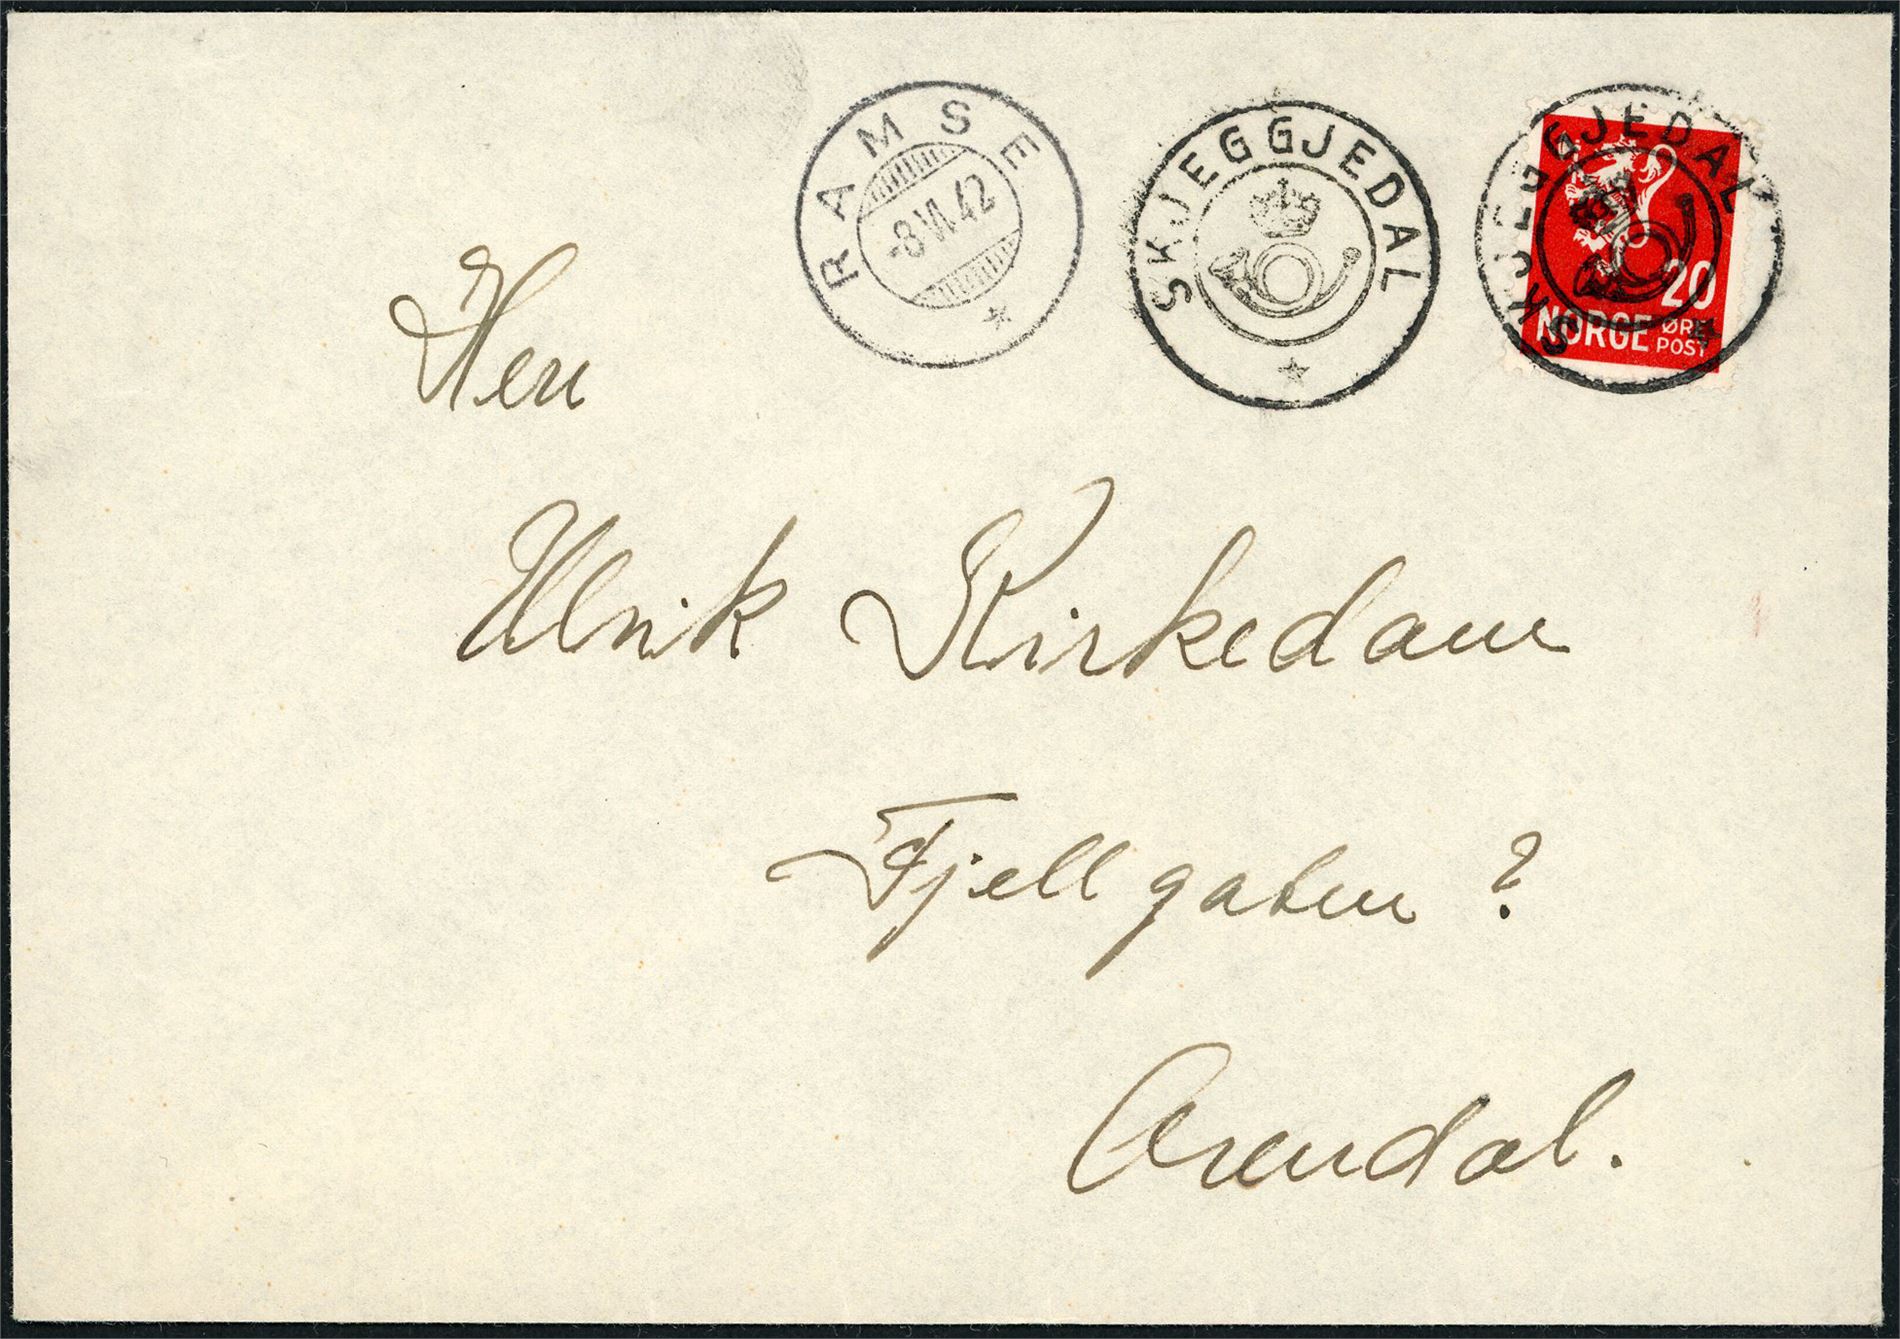 RAMSE
-8 VI.42
SKJEGGJEDAL
SKJEGGJEDAL
20
NORGE ØRE
POST
Herr
Ulrik Kirkedam
Fjellgaten ?
Arendal.